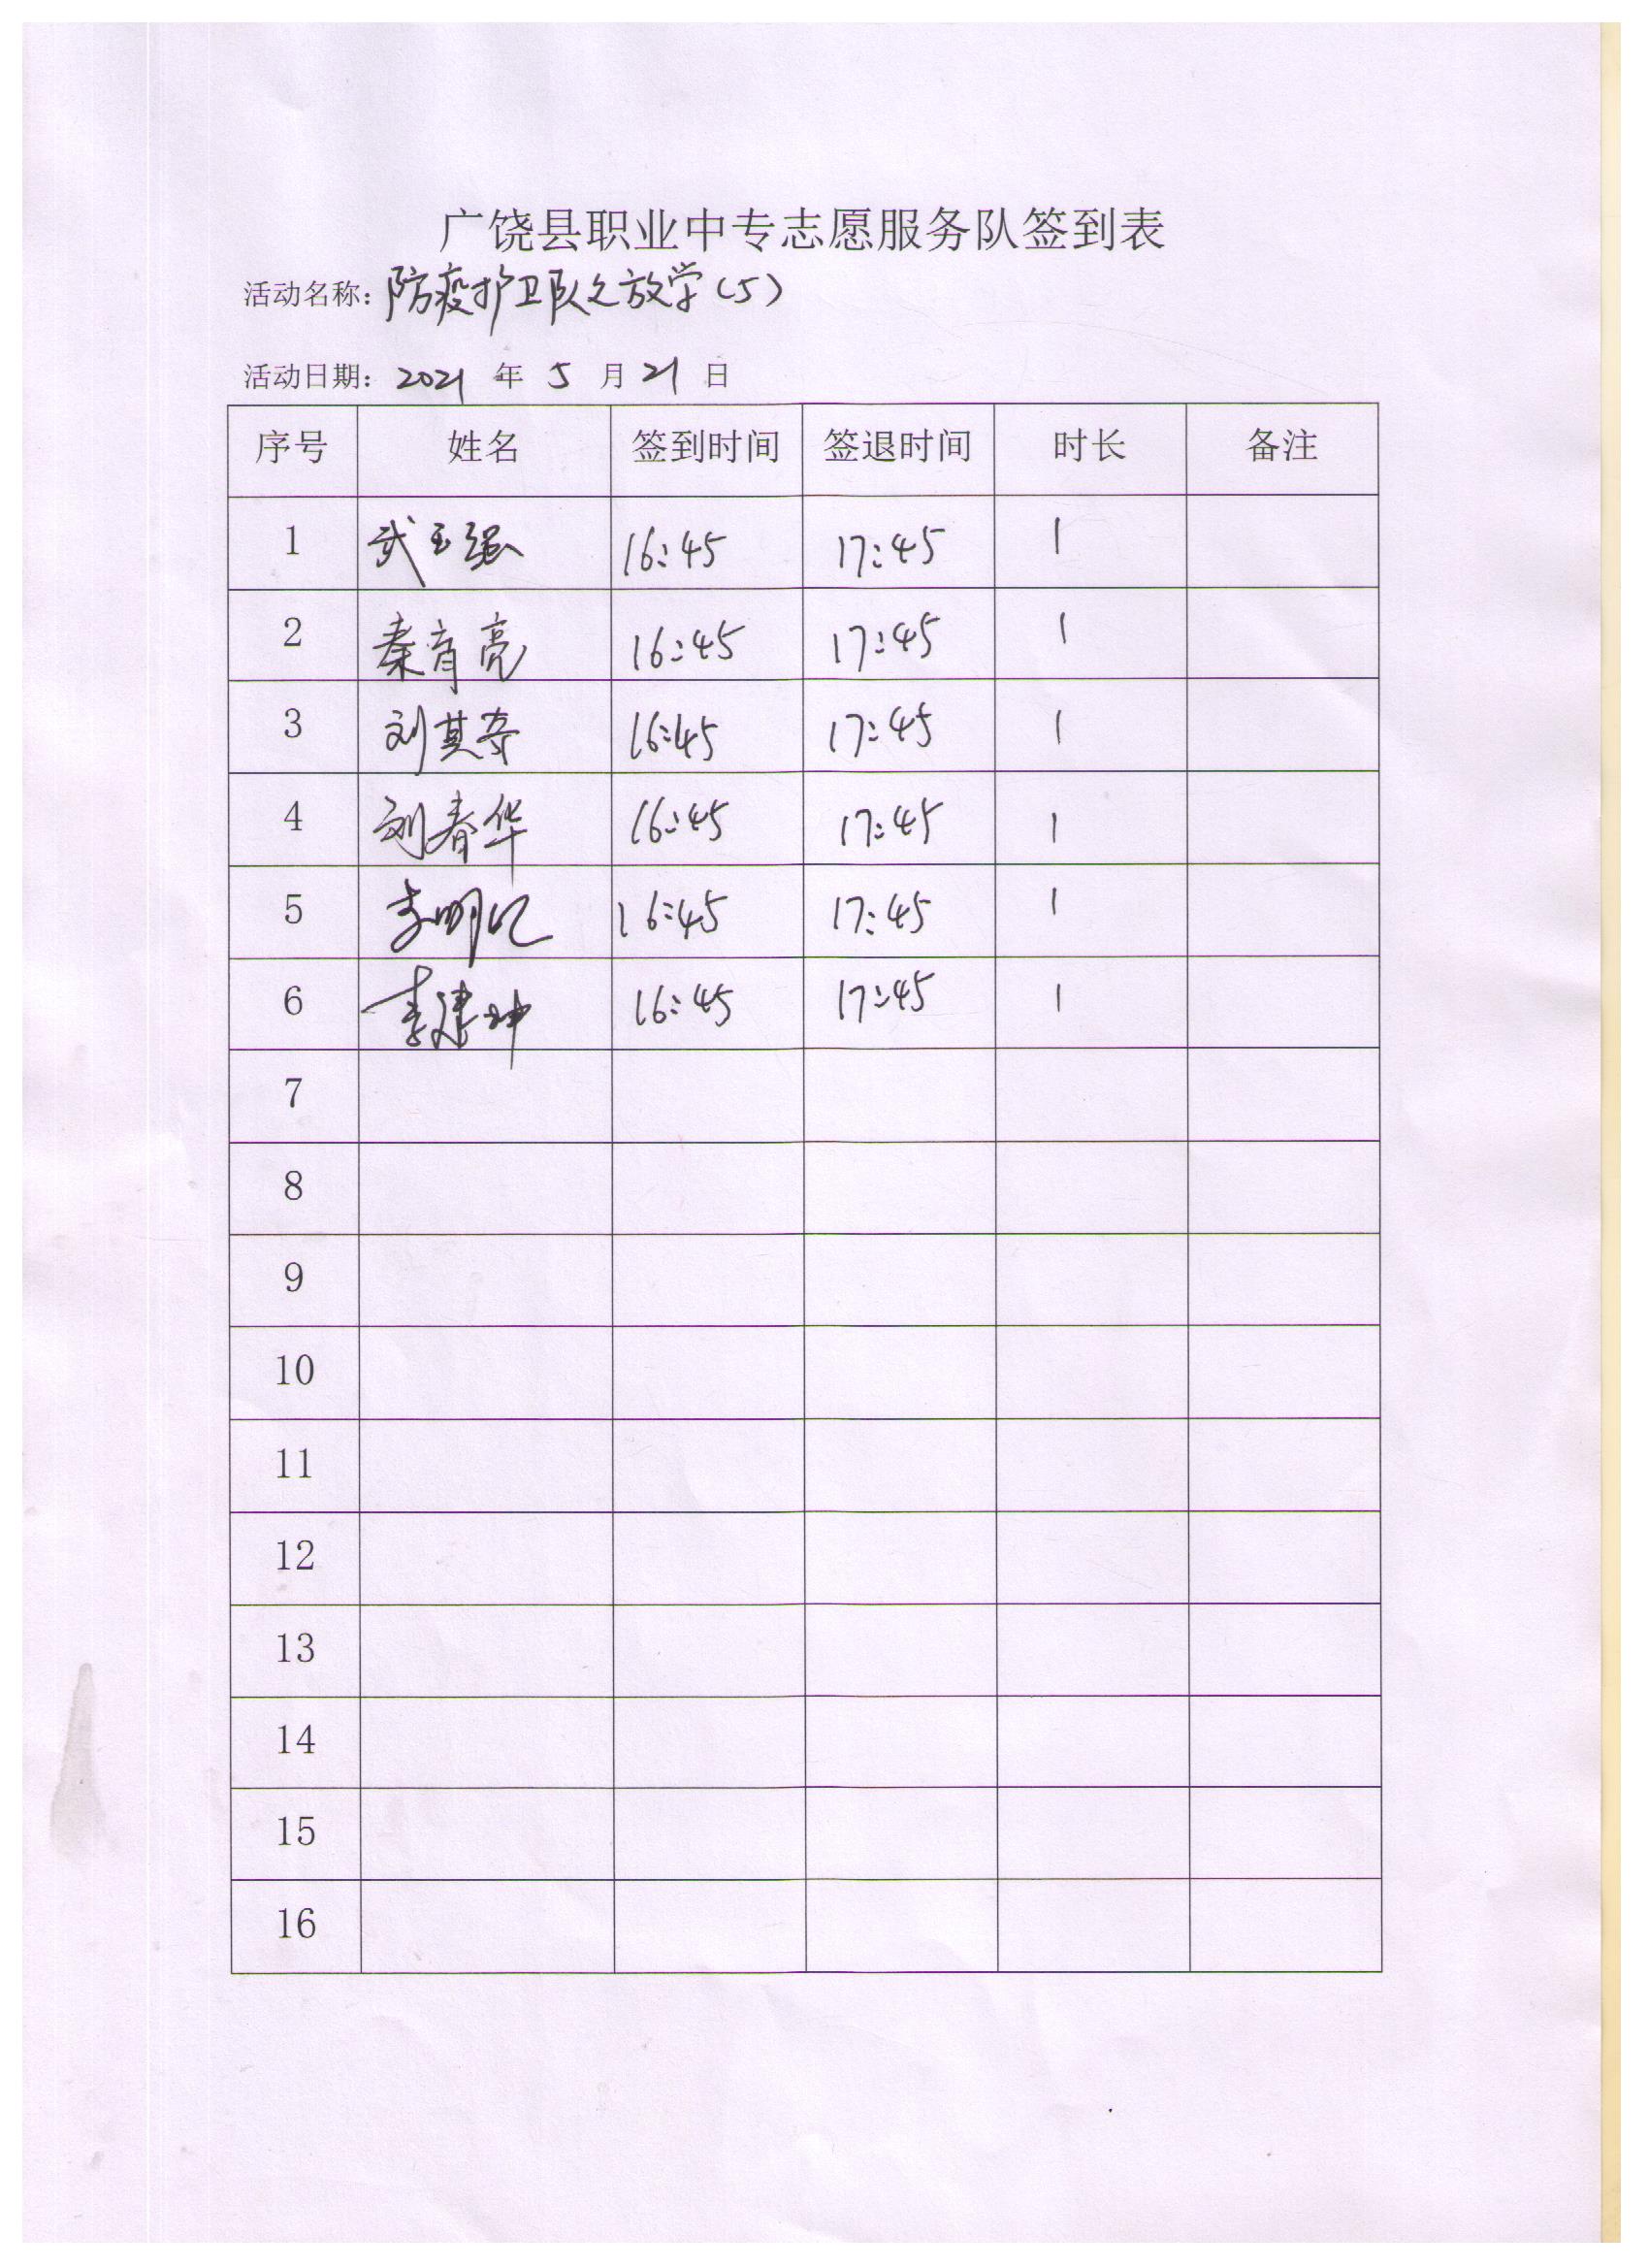 广饶县职业中专志愿服务队签到表
活动名称：防疫护卫队之放学（5）
活动日期：2021 年 5 月 21 日
序号 姓名 签到时间 签退时间 时长 备注
1 武玉强 16:45 17:45 1
2 秦育亮 16:45 17:45 1
3 刘其奇 16:45 17:45 1
4 刘春华 16:45 17:45 1
5 李明 16:45 17:45 1
6 李建坤 16:45 17:45 1
7
8
9
10
11
12
13
14
15
16